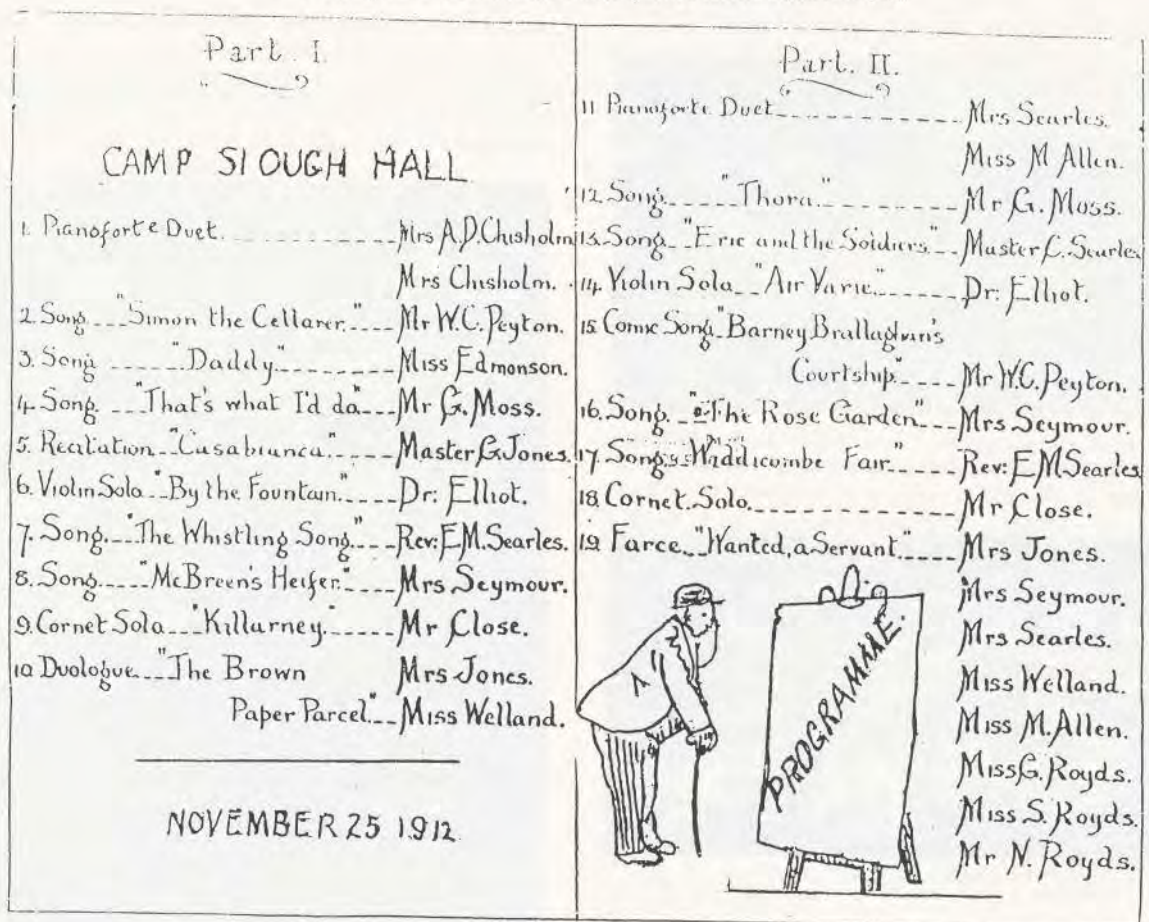 Part. I.
CAMP SLOUGH HALL
1. Pianoforte Duet. Mrs A.D. Chisholm
Mrs Chisholm.
2. Song "Simon the Cellarer." Mr W.C. Peyton.
3. Song "Daddy" Miss Edmonson.
4. Song. "That's what I'd do" Mr G. Moss.
5. Recitation "Casabianca" Master G. Jones.
6. Violin Solo "By the Fountain." Dr: Elliot.
7. Song. "The Whistling Song" Rev: E.M. Searles.
8. Song. "McBreen's Heifer" Mrs Seymour.
9. Cornet Solo "Killarney" Mr Close.
10 Duologue "The Brown Mrs Jones.
Paper Parcel" Miss Welland.
NOVEMBER 25 1912
Part. II.
11 Pianoforte Duet Mrs Searles.
Miss M Allen.
12 Song. "Thora." Mr G. Moss.
13. Song. "Eric and the Soldiers" Master C. Searles
14. Violin Solo "Air Varie" Dr: Elliot.
15. Comic Song "Barney Brallaghan's
Courtship" Mr W.C. Peyton.
16. Song. "The Rose Garden" Mrs Seymour.
17. Song "Widdicombe Fair" Rev: E.M Searles
18. Cornet. Solo. Mr Close.
19. Farce "Wanted, a Servant." Mrs Jones.
Mrs Seymour.
Mrs Searles.
Miss Welland.
Miss M. Allen.
Miss G. Royds.
Miss S. Royds.
Mr N. Royds.
PROGRAMME.